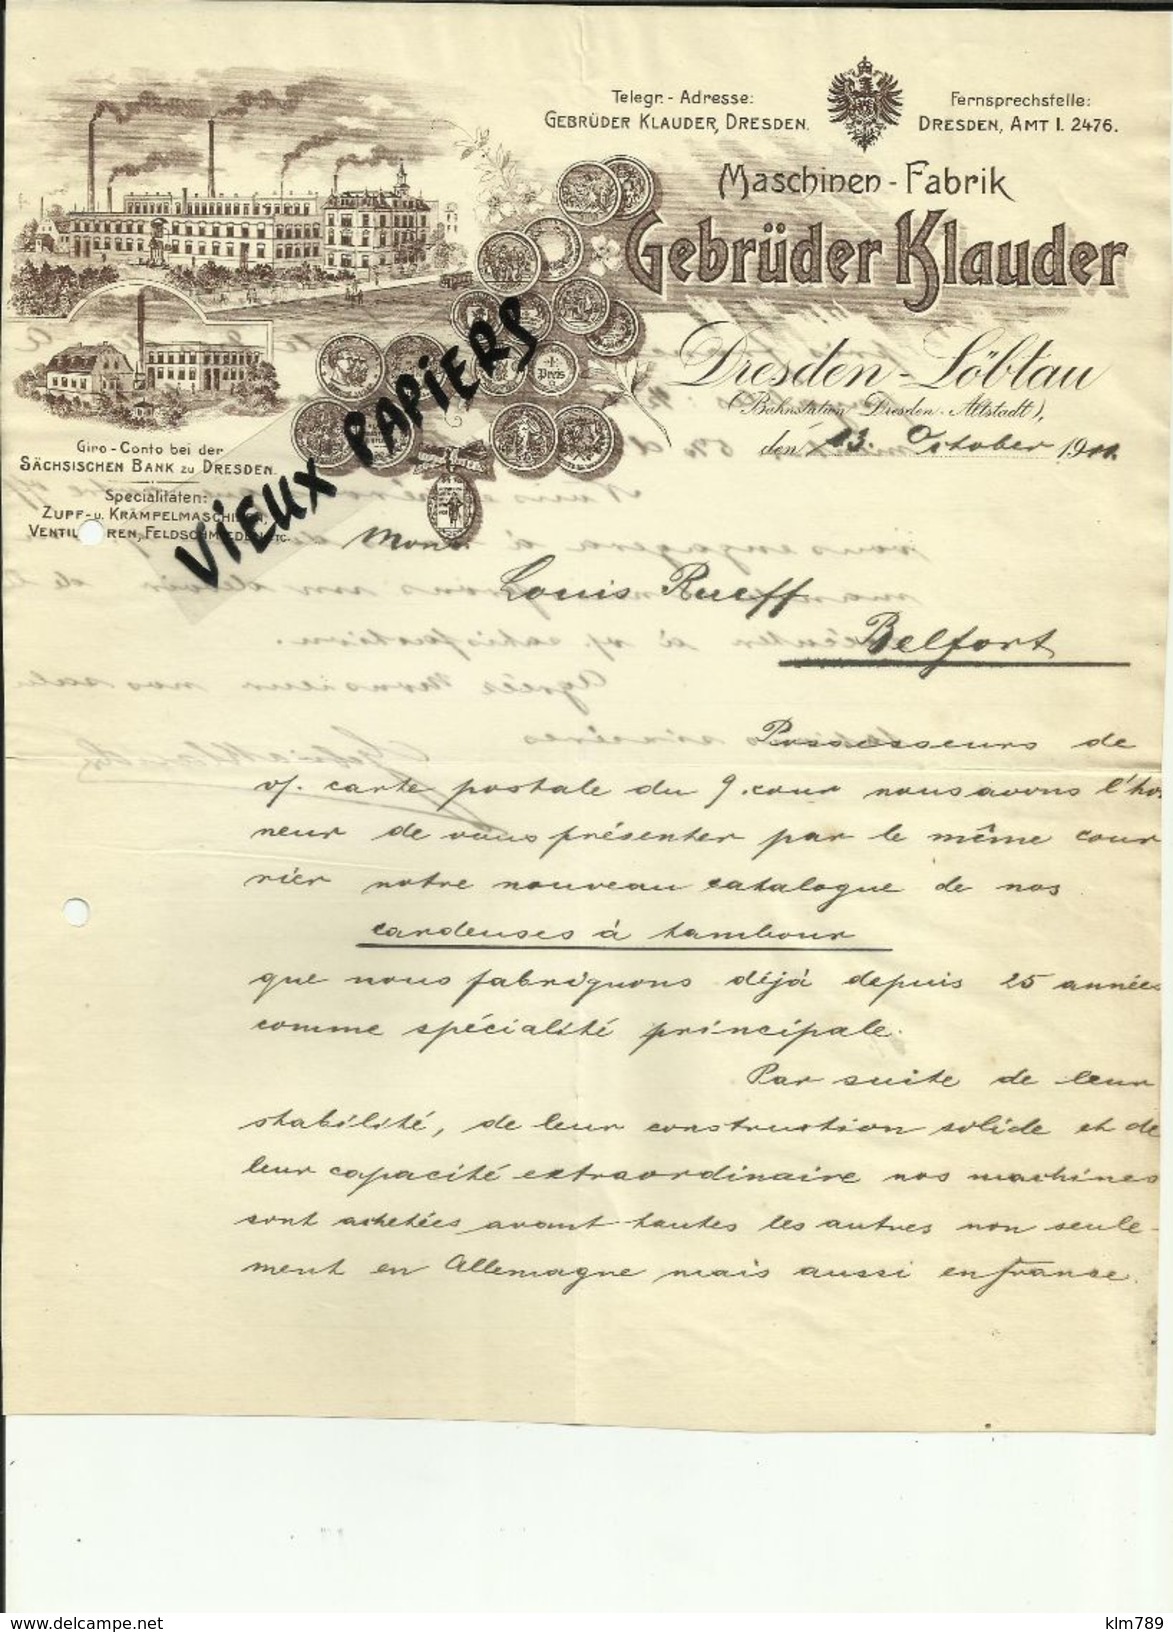 Telegr.- Adresse:
GEBRÜDER KLAUDER, DRESDEN.
Fernsprechstelle:
DRESDEN, AMT I. 2476.
Maschinen - Fabrik
Gebrüder Klauder
Dresden - Löbtau
(Bahnstation Dresden-Altstadt),
den 13. October 19
Preis
Giro-Conto bei der
SÄCHSISCHEN BANK ZU DRESDEN.
Specialitäten:
ZUPF- u. KRÄMPELMASCHINEN,
FELDSCHMIEDEN ETC.
VIEUX PAPIERS
Mons.
Louis Rueff
Belfort
Possesseurs de
v/. carte postale du 9. cour nous avons l'hon
neur de vous présenter par le même cour
rier notre nouveau catalogue de nos
cardeuses à tambour
que nous fabriquons déjà depuis 25 années
comme spécialité principale.
Par suite de leur
stabilité, de leur construction solide et de
leur capacité extraordinaire nos machines
sont achetées avant toutes les autres non seule-
ment en Allemagne mais aussi en France.
delcampe.net
klm789